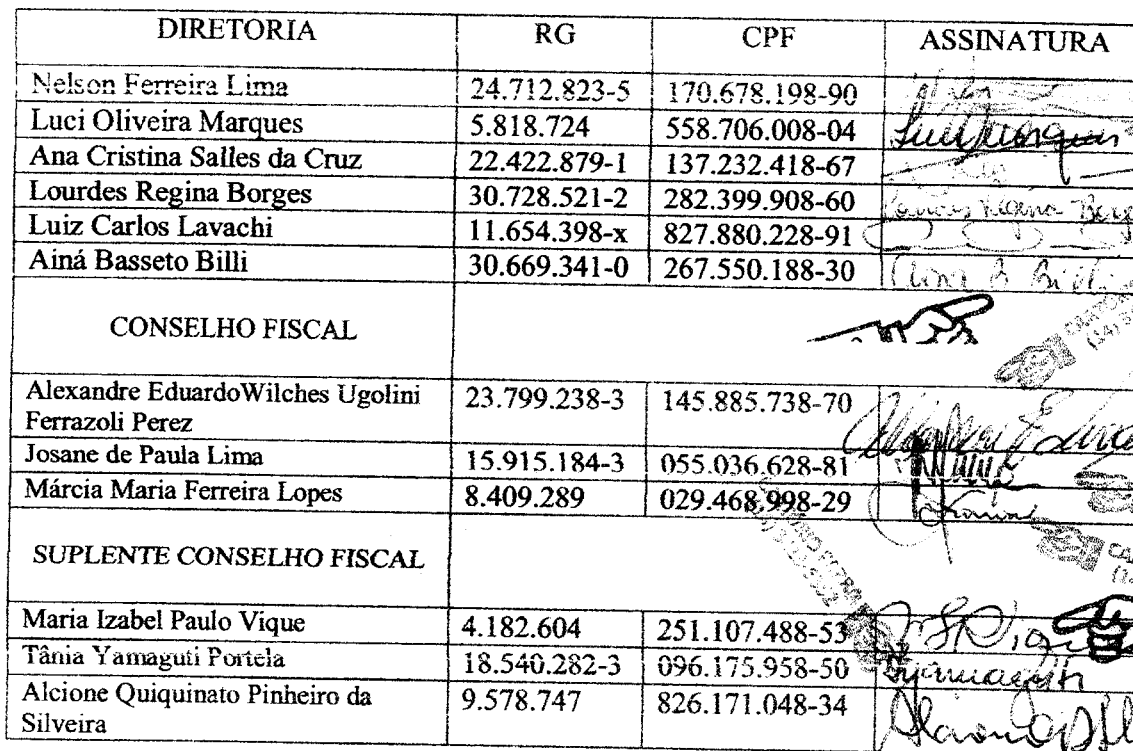 DIRETORIA RG CPF ASSINATURA
Nelson Ferreira Lima 24.712.823-5 170.678.198-90
Luci Oliveira Marques 5.818.724 558.706.008-04 Luci Marques
Ana Cristina Salles da Cruz 22.422.879-1 137.232.418-67
Lourdes Regina Borges 30.728.521-2 282.399.908-60 Lourdes Regina Borg
Luiz Carlos Lavachi 11.654.398-x 827.880.228-91
Ainá Basseto Billi 30.669.341-0 267.550.188-30 Ainá B Billi
CONSELHO FISCAL
Alexandre EduardoWilches Ugolini 23.799.238-3 145.885.738-70
Ferrazoli Perez
Josane de Paula Lima 15.915.184-3 055.036.628-81
Márcia Maria Ferreira Lopes 8.409.289 029.468.998-29
SUPLENTE CONSELHO FISCAL
Maria Izabel Paulo Vique 4.182.604 251.107.488-53
Tânia Yamaguti Portela 18.540.282-3 096.175.958-50
Alcione Quiquinato Pinheiro da 9.578.747 826.171.048-34
Silveira